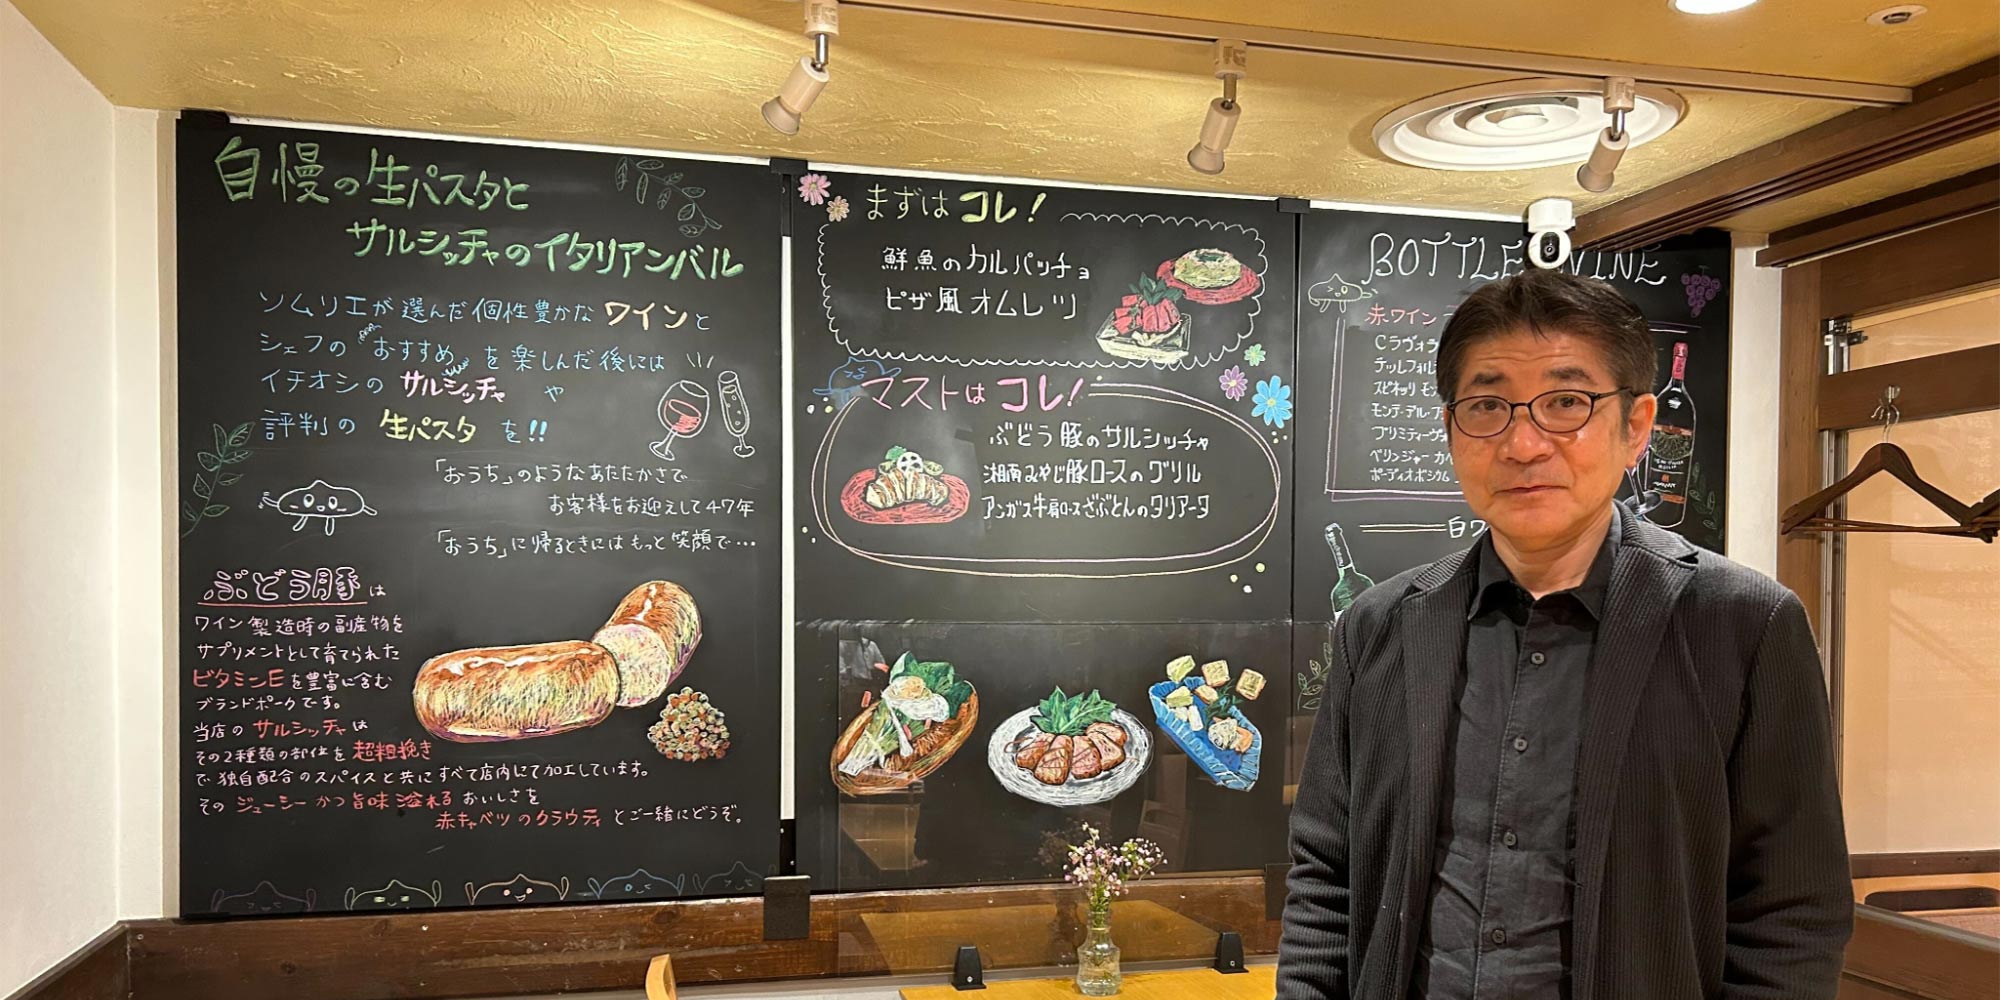 自慢の生パスタと
サルシッチャのイタリアンバル
ソムリエが選んだ個性豊かなワインと
シェフのおすすめを楽しんだ後には
イチオシのサルシッチャや
評判の生パスタを!!
「おうち」のようなあたたかさで
お客様をお迎えして47年
「おうち」に帰るときにはもっと笑顔で…
ぶどう豚は
ワイン製造時の副産物を
サプリメントとして育てられた
ビタミンEを豊富に含む
ブランドポークです。
当店のサルシッチャは
その2種類の部位を超粗挽き
で独自配合のスパイスと共にすべて店内にて加工しています。
そのジューシーかつ旨味溢れるおいしさを
赤キャベツのクラウティとご一緒にどうぞ。
まずはコレ!
鮮魚のカルパッチョ
ピザ風オムレツ
マストはコレ!
ぶどう豚のサルシッチャ
湘南みやじ豚ロースのグリル
アンガス牛肩ロースざぶとんのタリアータ
BOTTLE WINE
赤ワイン
Cラヴォラ
テッレフォル
スピネッリ モン
モンテ・デル・フ
プリミティーヴォ
ベリンジャー カベ
ボーディオボシカム
白ワ